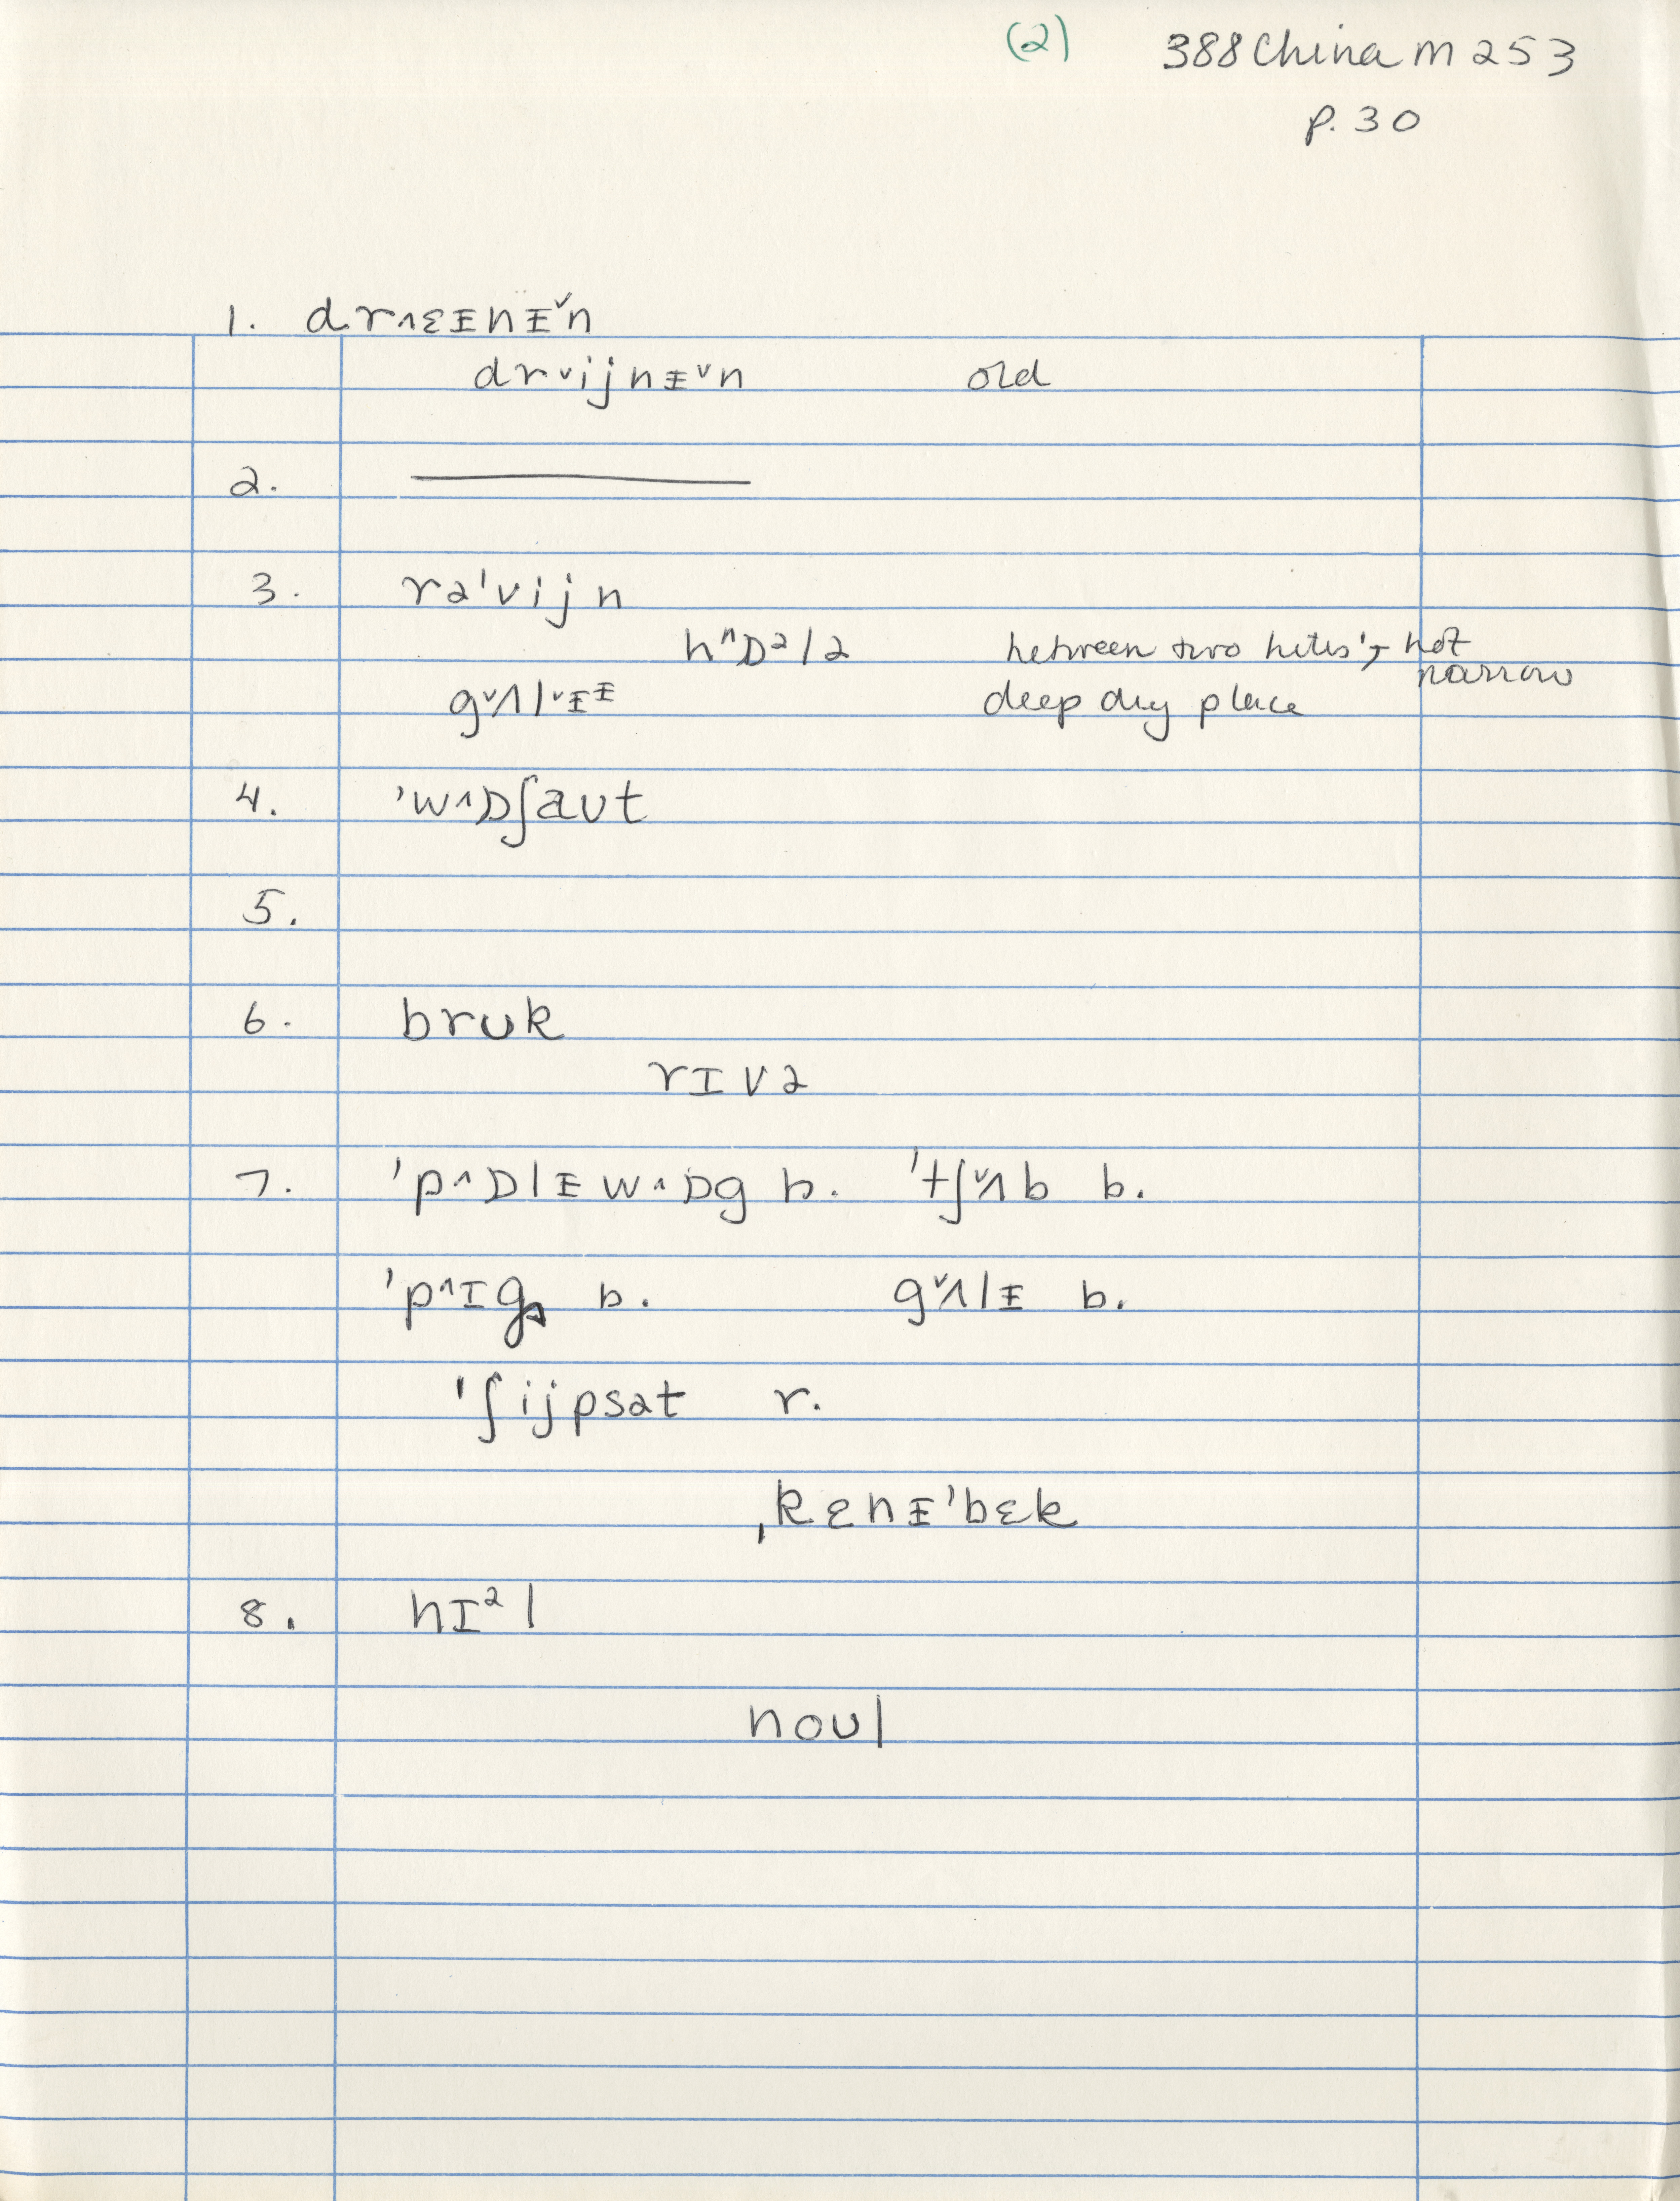 (2) 388 China M 253
p. 30
1. dr˄ɛᵻnᵻ˅n
dr˅ijnᵻ˅n old
2. ———
3. rə'vijn
hⁿɒᵊlə between two hills; not
narrow
g˅ʌl˅ᵻᵻ deep dry place
4. 'w˄ɒʃaʊt
5.
6. brʊk
rɪvə
7. 'p˄ɒlᵻ w˄ɒg b. 'tʃ˅ʌb b.
'p˄ɪg b. g˅ʌlᵻ b.
'ʃijpsat r.
ˌkɛnᵻ'bɛk
8. hɪᵊl
noʊl